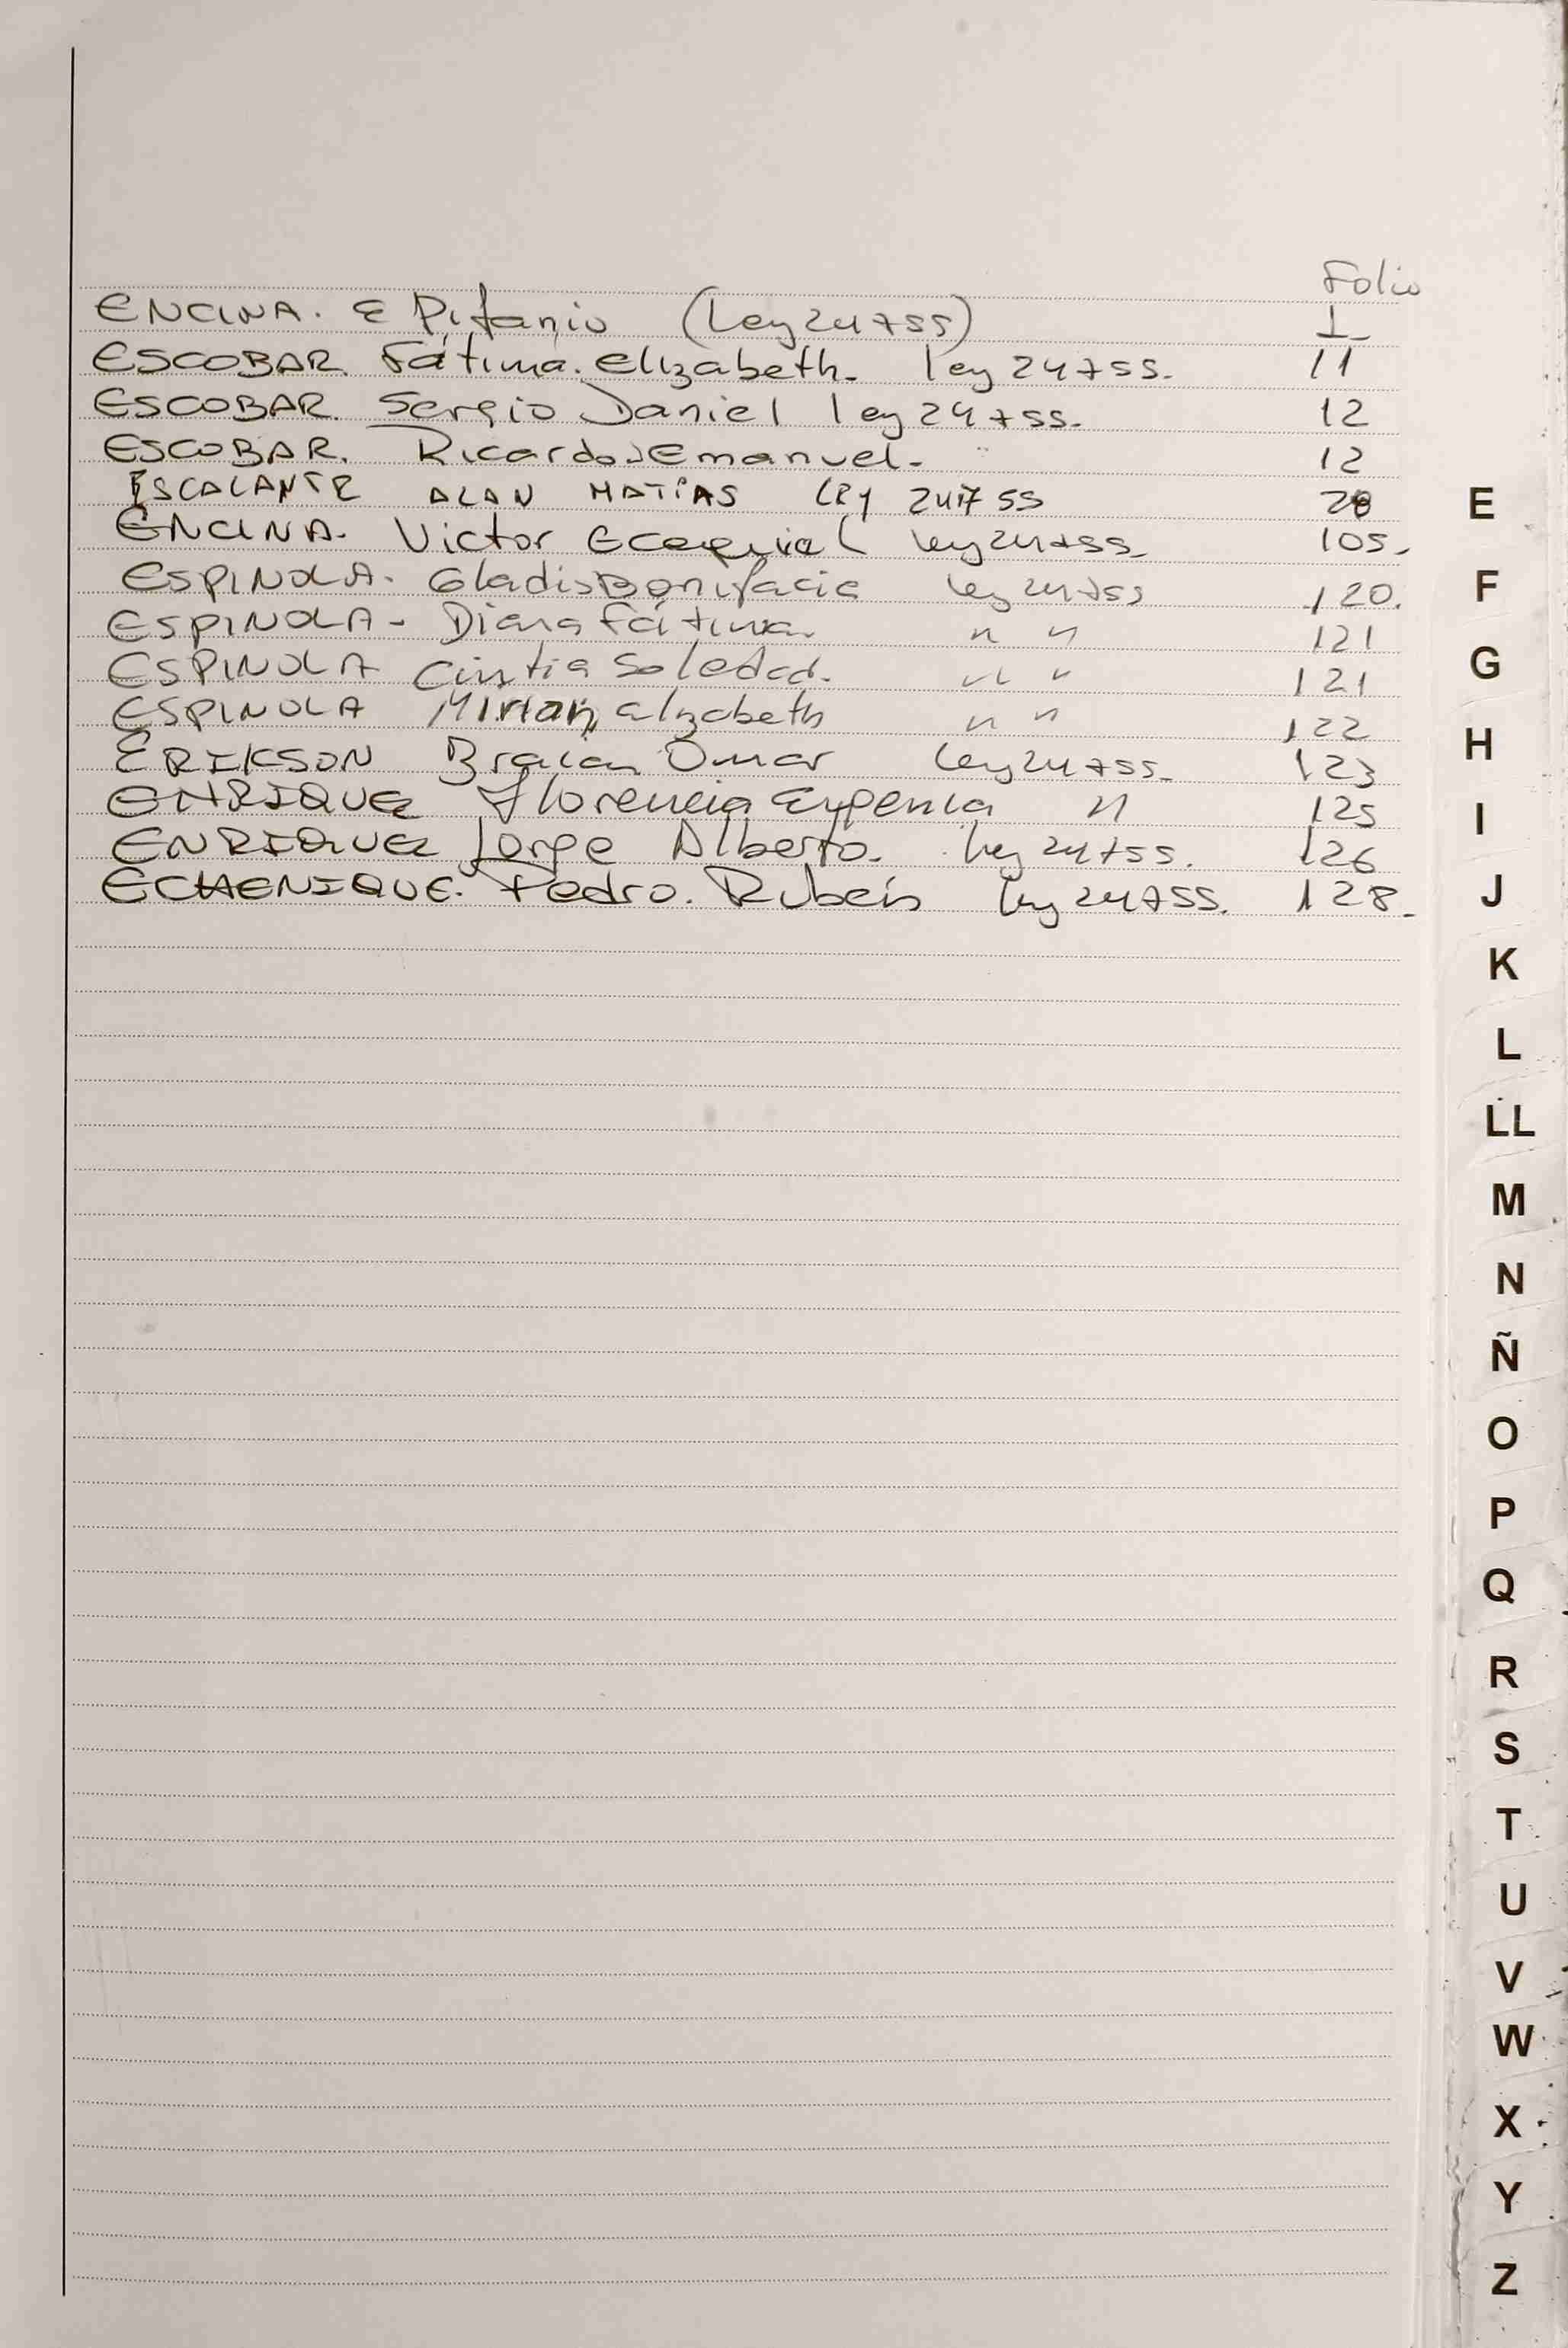 Folio
ENCINA. EPifanio (Ley 24755) 1
ESCOBAR. Fátima. Elizabeth. ley 24755. 11
ESCOBAR. Sergio Daniel ley 24755. 12
ESCOBAR. Ricardo Emanuel. 12
ESCALANTE ALAN MATÍAS LEY 24755
ENCINA. Victor Ecequiel Ley 24755 105.
ESPINOLA. Gladis Bonifacia Ley 24755 120.
ESPINOLA - Diana Fátima. " " 121
ESPINOLA Cintia Soledad. " " 121
ESPINOLA Mirian, Elizabeth " " 122
ERIKSON Braian Omar Ley 24755. 123
ENRIQUE Florencia Eugenia " 125
ENRIQUE Jorge Alberto. Ley 24755. 126
ECHENIQUE. Pedro. Rubén Ley 24755. 128.
E
F
G
H
I
J
K
L
LL
M
N
Ñ
O
P
Q
R
S
T
U
V
W
X
Y
Z